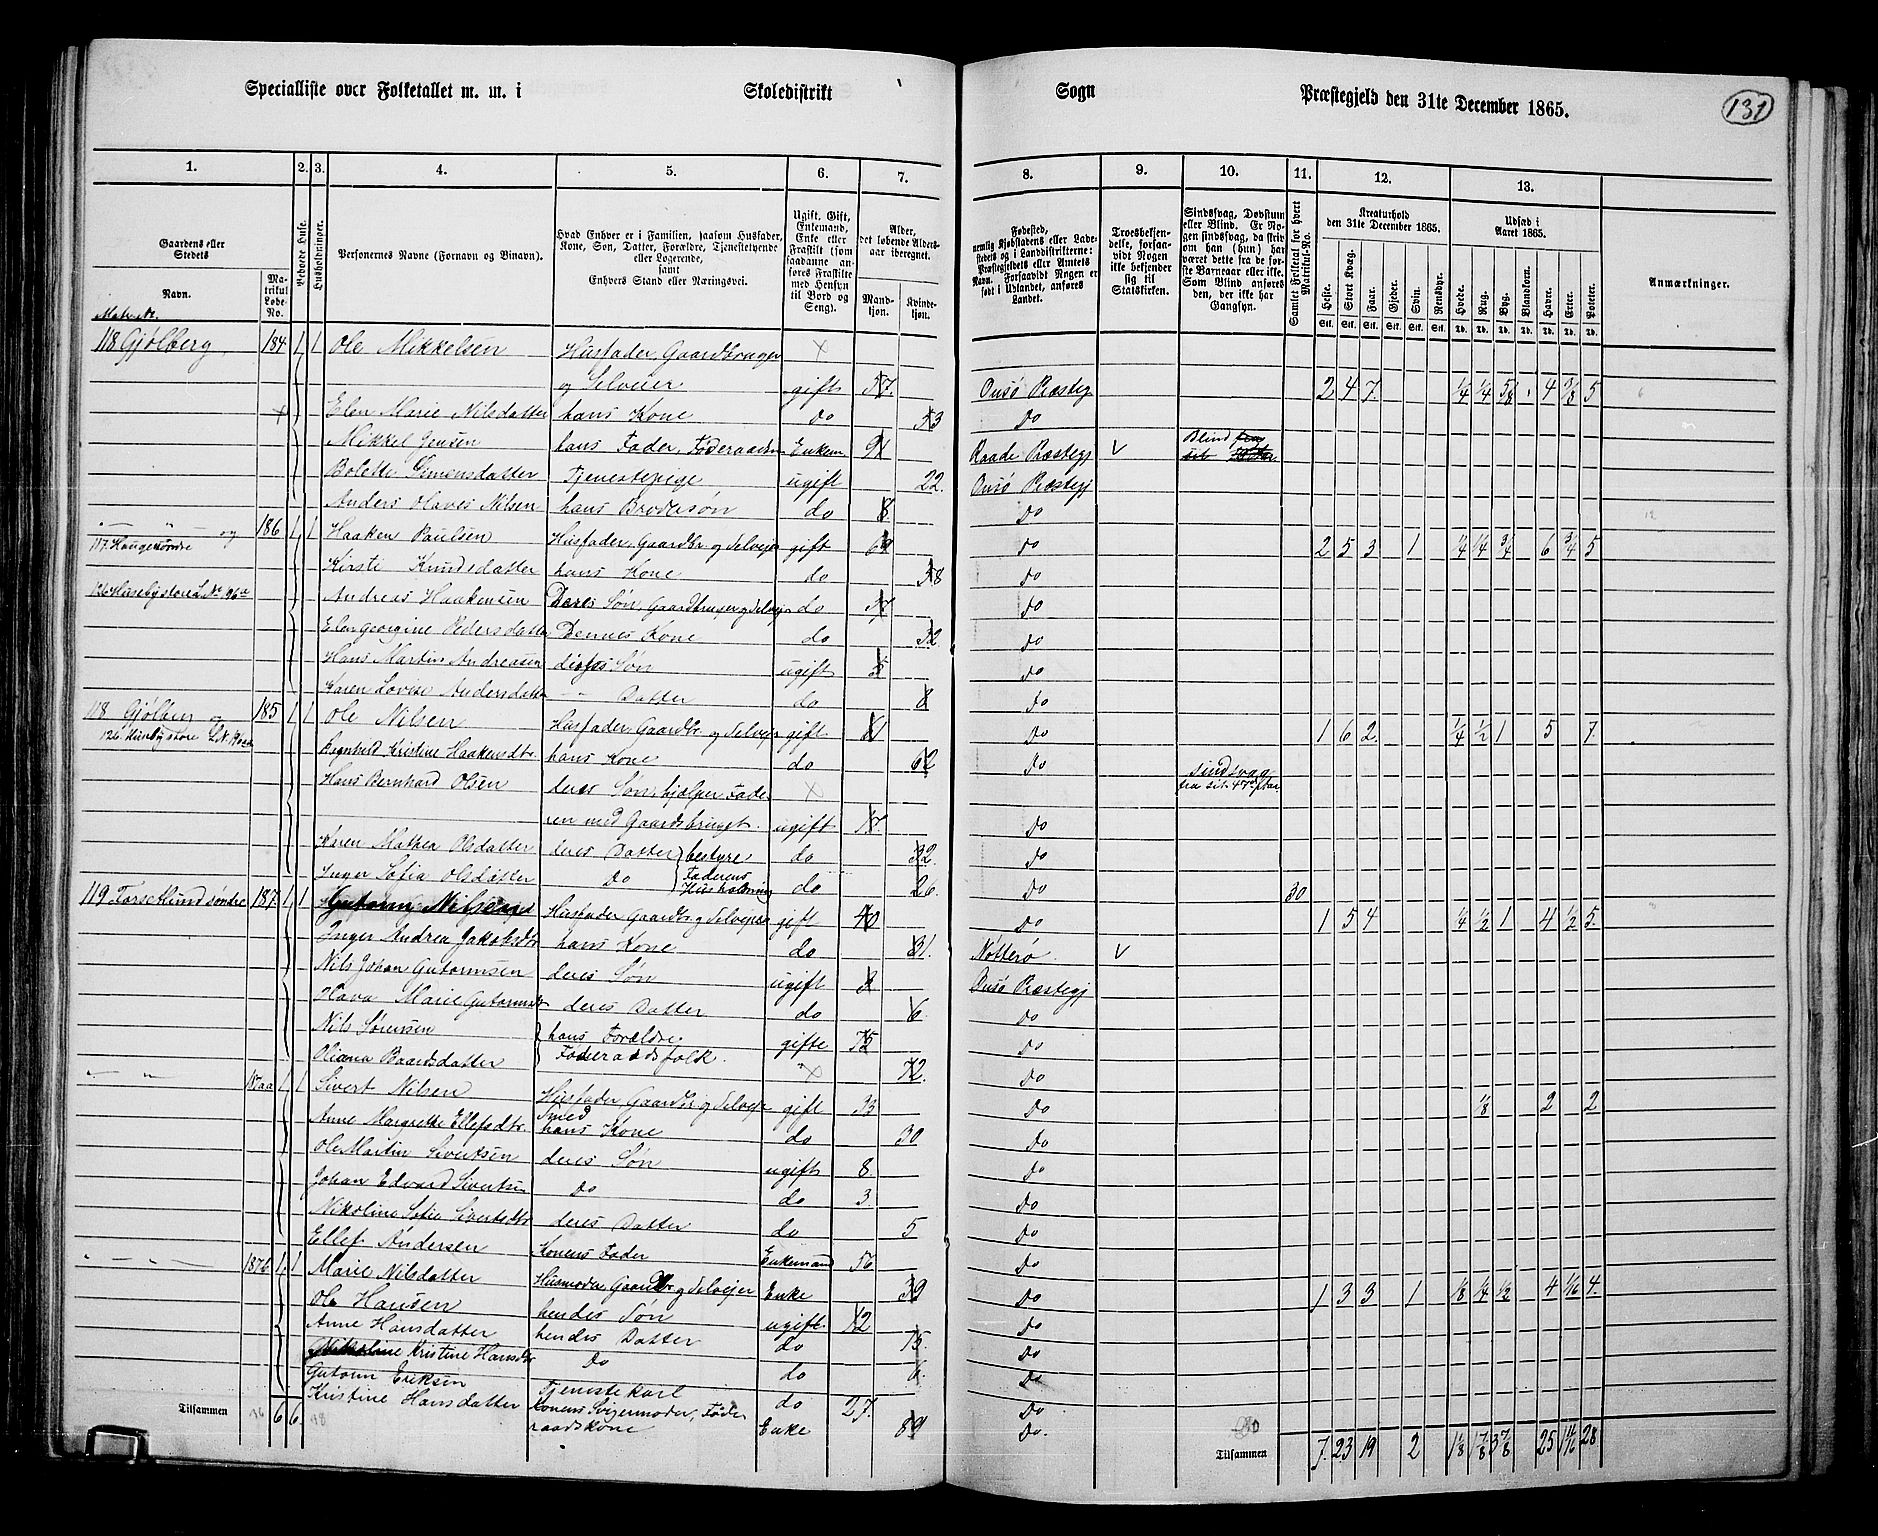 Specialliste over Folketallet m. m. i Skoledistrikt Sogn Præstegjeld den 31te December 1865. 131
1. 2. 3. 4. 5. 6. 7. 8. 9. 10. 11. 12. 13.
Gaardens eller Stedets Navn. Matrikul Løbe-No.
Beboede Huse.
Husholdninger.
Personernes Navne (Fornavn og Binavn).
Hvad Enhver er i Familien, saasom Husfader, Kone, Søn, Datter, Forældre, Tjenestetyende eller Logerende, samt Enhvers Stand eller Næringsvei.
Ugift, Gift, Enkemand, Enke eller Fraskilt (som saadanne anføres Fraskilte med Hensyn til Bord og Seng).
Alder, det løbende Alders-aar iberegnet. Mand-kjøn. Kvinde-kjøn.
Fødested, nemlig Kjøbstadens eller Ladestedets og i Landdistrikterne: Præstegjeldets eller Amtets Navn. Forsaavidt Nogen er født i Udlandet, anføres Landet.
Troesbekjendelse, forsaavidt Nogen ikke bekjender sig til Statskirken.
Sindssvag, Døvstum eller Blind. Er Nogen sindssvag, da skrives om han (hun) har været dette fra de første Barneaar eller ikke. Som Blind anføres den, der ikke har Gangsyn.
Samlet Folketal for hvert Matrikul-No.
Kreaturhold den 31te December 1865. Heste. Stort Kvæg. Faar. Gjeder. Svin. Rensdyr.
Udsæd i Aaret 1865. Hvede. Rug. Byg. Blandkorn. Havre. Erter. Poteter.
Anmærkninger.
118 Gjølberg 184 1 1 Ole Mikkelsen Husfader, Gaardbruger
og Selveier gift 57. Onsø Præstegj 2 4 7 1/4 1/4 5/8 4 3/8 5
Elen Marie Nilsdatter hans Kone do 53 Do
Mikkel Jensen hans Fader, Føderaadsm Enkem 91 Raade Præstegj Blind
Bolette Simensdatter Tjenestepige ugift 22. Onsø Præstegj
Anders Olaves Nilsen hans Brodersøn do 8 Do
— " — og 186 1 1 Haaken Paulsen Husfader, Gaardbr og Selveier gift Do 2 5 3 1 1/4 1/4 3/4 6 3/4 5
117. Haugesøndre
Kirsti Knudsdatter hans Kone do 58 Do
Andreas Haakensen Deres Søn, Gaardbruger og Selveier do Do
Elen Georgine Pedersdatter Dennes Kone do 32 Do
Hans Martin Andreasen disses Søn ugift 5 Do
Karen Lovise Andersdatter — " Datter do 8 Do
118 Gjølberg og 185 1 1 Ole Nilsen Husfader, Gaardbr og Selveier gift 61 Do 1 6 2 1/4 1/2 1 5 7.
Kristine Haakensdtr. hans Kone do 62 Do
Hans Bernhard Olsen deres Søn, hjelper Fade- sindsvag
ren med Gaardsbruget. ugift Do
Karen Mathea Olsdatter deres Datter bestyrer do 32. Do
Inger Sofia Olsdatter Do Faderens Husholdning do 26. Do 30
119 Torsetlund søndre 187 1 1 Gutorm Nilsen Husfader Gaardbr og Selveier gift 40 Do 1 5 4 1/4 1/2 1 4 1/2 5.
Inger Andrea Jakobsdtr hans Kone do 31. Nøtterø
Nils Johan Gutormsen deres Søn ugift 2 Onsø Præstegj
Marie Gutormsdtr deres Datter do 6 Do
Nils Sørensen hans Forældre. gifte 75 Do
Oliana Baardsdatter Føderaadsfolk. 72. Do
— " — 187aa 1 1 Sivert Nilsen Husfader Gaardbr og Selveier gift 33 Do 1/8 2 2
Smed
Anne Margrethe Ellefsdtr. hans Kone do 30 Do
Ole Martin Sivertsen deres Søn ugift 8. Do
Johan Edvard Sivertsen Do do 3. Do
Nikoline Sofie Sivertsdtr deres Datter do 5 Do
Ellef Andersen Konens Fader Enkemand 56 Do
— " — 187b 1 1 Marie Nilsdatter Husmoder Gaardbr og Selveier Enke 39 Do 1 3 3 1 1/8 1/4 1/2 4 1/16 4.
Ole Hansen hendes Søn ugift. 12 Do
Anne Hansdatter hendes Datter do 15. Do
Kristine Hansdtr Do do 6. Do
Gutorm Eriksen Tjenestekarl do 27. Do
Kristine Hansdatter Konens Svigermoder, Føde-
raadskone Enke 89 Do.
Tilsammen 6 6. Tilsammen 7. 23 19 2 1 1/8 1 7/8 3 7/8 25 1 11/16 28